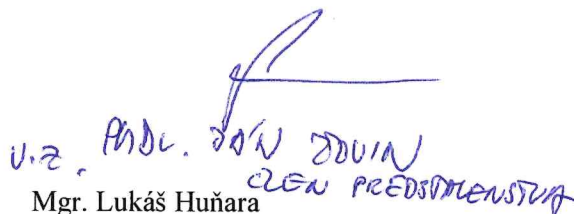 v.z. PhDr. JÁN
ČLEN PREDSTAVENSTVA
Mgr. Lukáš Huňara